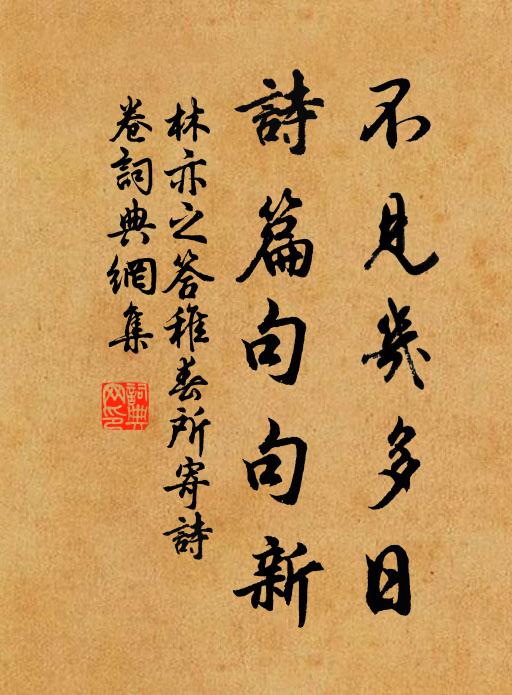 不見幾多日
詩篇句句新
林亦之答稚春所寄詩
卷詞典網集
詞典
网印